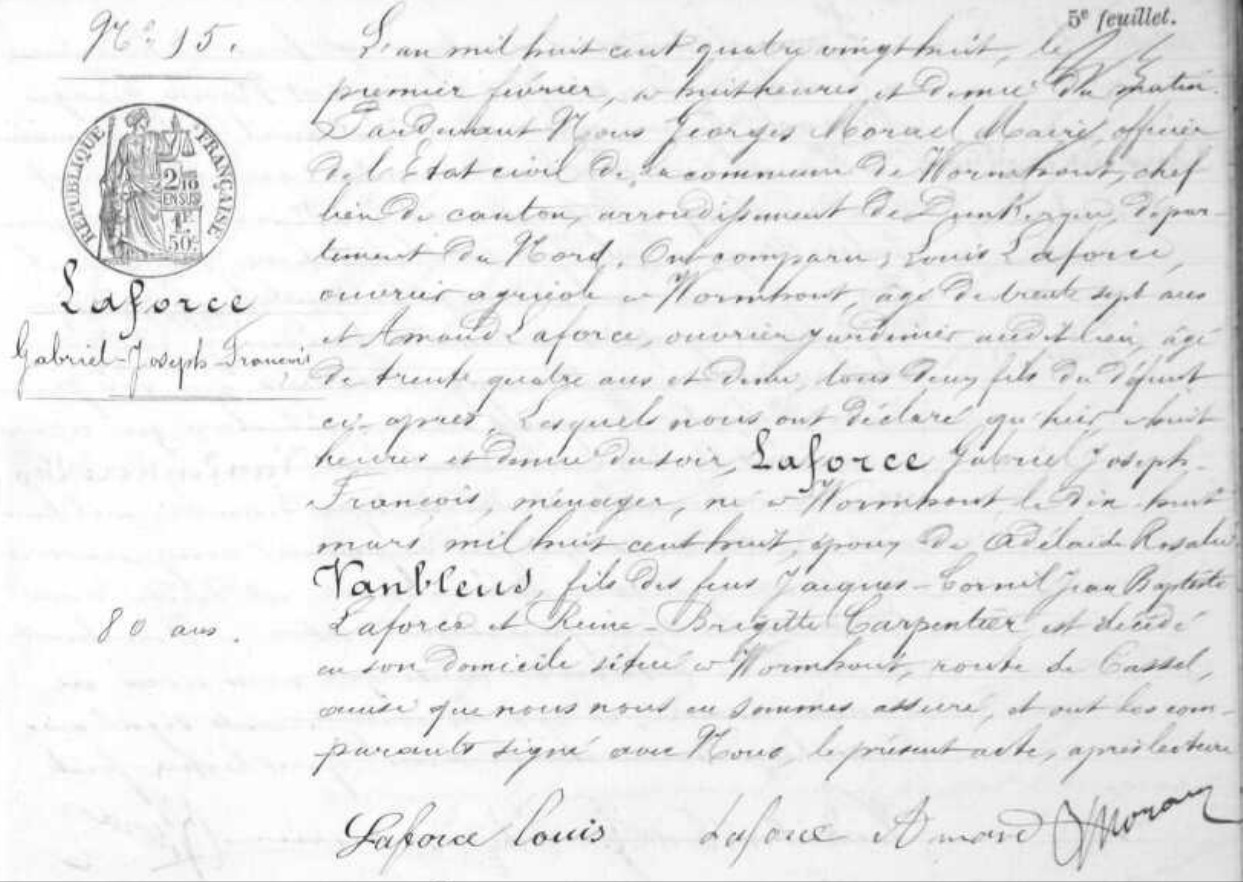 5e feuillet.
No 15.
L'an mil huit cent quatre vingt huit, le
premier février, à huit heures et demie du matin.
Pardevant Nous Georges Morael Maire, officier
de l'Etat civil de la commune de Wormhout, chef
lieu de canton, arrondissement de Dunkerque, dépar-
tement du Nord, Ont comparu, Louis Laforce,
ouvrier agricole à Wormhout, âgé de trente sept ans
et Amand Laforce, ouvrier jardinier audit lieu, âgé
de trente quatre ans et demi, tous deux fils du défunt
ci-après, Lesquels nous ont déclaré qu'hier à huit
heures et demie du soir, Laforce Gabriel Joseph-
François, ménager, né à Wormhout le dix huit
mars mil huit cent huit, époux de Adélaïde Rosalie
Vanbleus, fils des feus Jacques-Cornil Jean Baptiste
Laforce et Reine-Brigitte Carpentier, est décédé
en son domicile situé à Wormhout, route de Cassel,
ainsi que nous nous en sommes assuré, et ont les com-
parants signé avec Nous, le présent acte, après lecture
REPUBLIQUE FRANÇAISE
2/10
EN SUS
1F
50c
Laforce
Gabriel-Joseph-François
80 ans.
Laforce Louis Laforce Amand GMorael